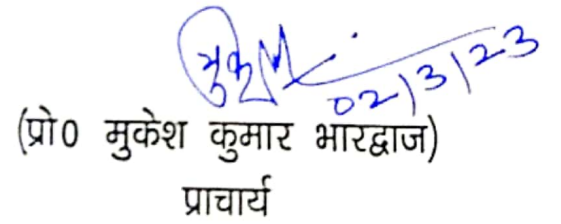 मुकेश
02/3/23
(प्रो0 मुकेश कुमार भारद्वाज)
प्राचार्य